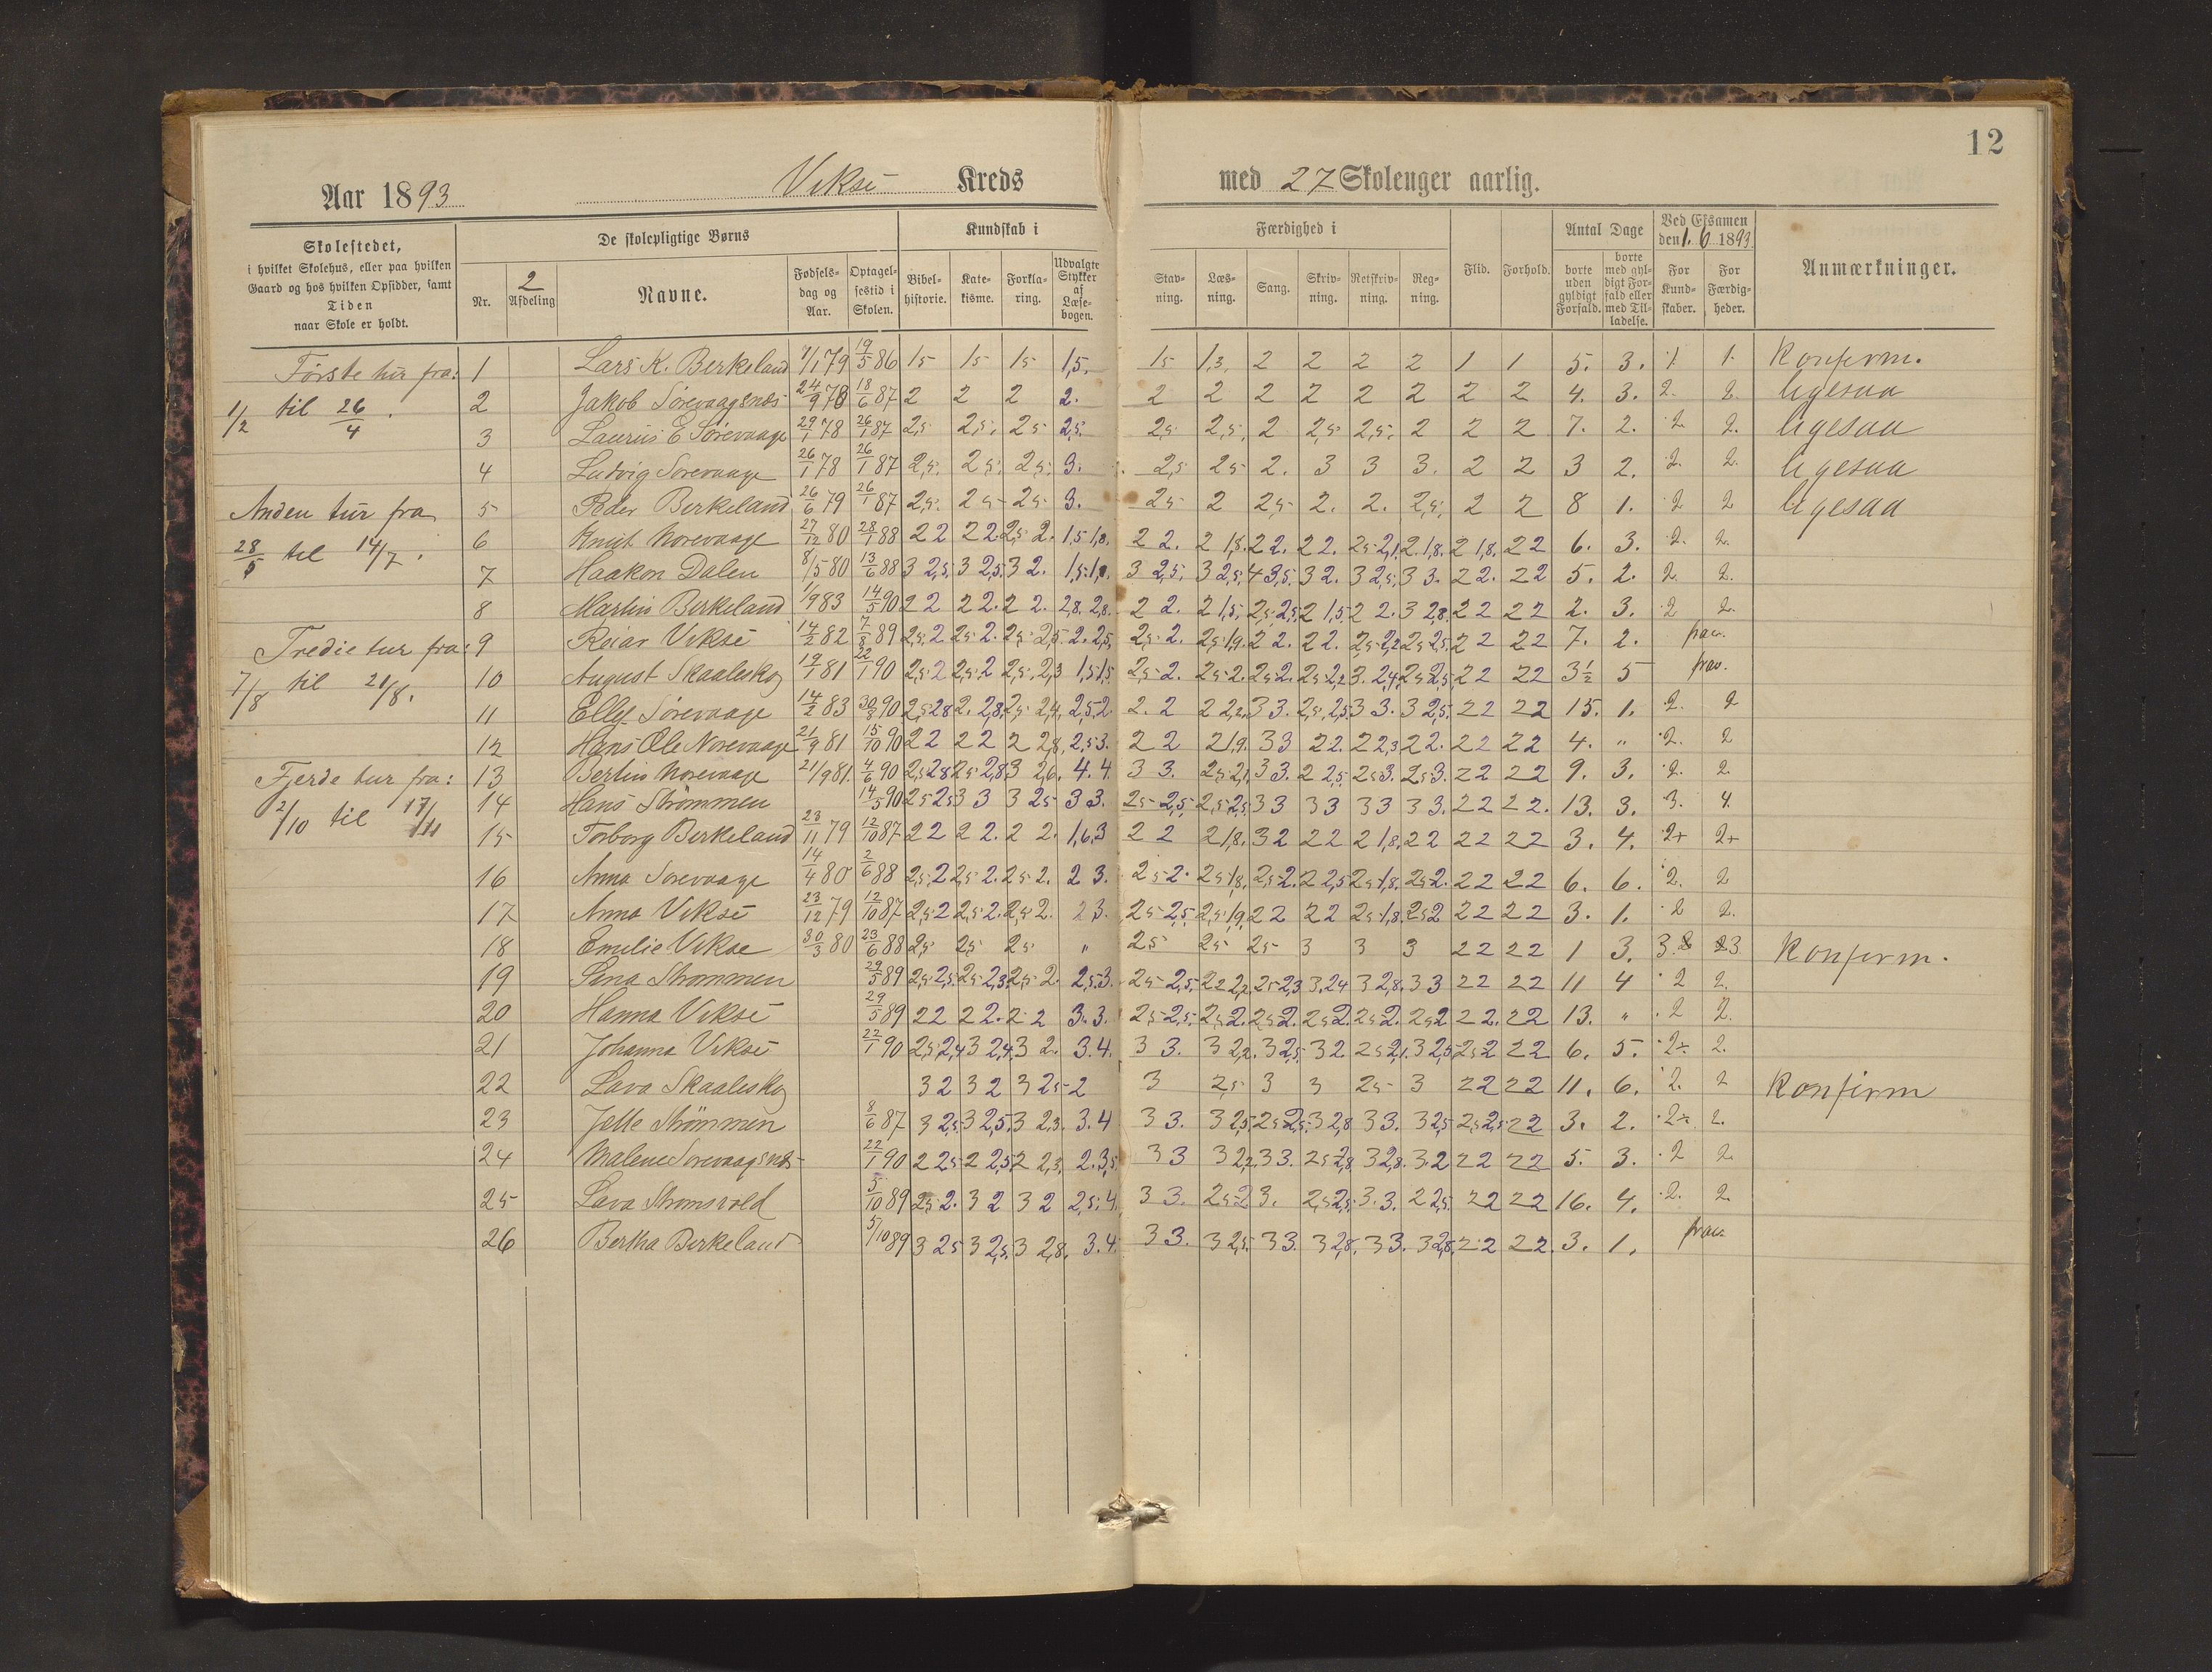 12
Aar 1893 Viksé Kreds med 27 Skoleuger aarlig.
Skolestedet, i hvilket Skolehus, eller paa hvilken Gaard og hos hvilken Opsidder, samt Tiden naar Skole er holdt.
De skolepligtige Børns
Nr. 2 Afdeling Navne. Fødselsdag og Aar. Optagelsestid i Skolen.
Kundskab i
Bibelhistorie. Katekisme. Forklaring. Udvalgte Stykker af Læsebogen.
Færdighed i
Stavning. Læsning. Sang. Skrivning. Retskrivning. Regning. Flid. Forhold.
Antal Dage
borte uden gyldigt Forfald. borte med gyldigt Forfald eller med Tilladelse.
Ved Eksamen den 1. 6 1893.
For Kundskaber. For Færdigheder.
Anmærkninger.
Første tur fra:
1/2 til 26/4.
Anden tur fra
28/5 til 14/7.
Tredie tur fra:
7/8 til 21/8.
Fjerde tur fra:
2/10 til
1 Lars K. Berkeland 7/1 79 19/5 86 15 15 15 1,5. 15 1,3. 2 2 2 2 1 1 5. 3. 1. 1. Konferm.
2 Jakob Sørevaagsnæs 24/9 78 18/6 87 2 2 2 2. 2 2 2 2 2 2 2 2 4. 3. 2. 2. ligesaa
3 Laurus E Sørevaage 29/1 78 26/1 87 2,5 2,5, 25 2,5. 2,5 2,5, 2 2,5 2,5, 2 2 2 7. 2. 2 2. ligesaa
4 Ludvig Sorevaage 26/1 78 26/1 87 2,5. 25. 25. 3. 2,5 25 2. 3 3 3. 2 2 3 2. 2. 2. ligesaa
5 Peder Berkeland 26/6 79 26/1 87 2,5. 25 25 3. 25 2 2,5 2. 2. 2,5, 2 2 8 1. 2 2 ligesaa
6 Knut Norevaage 27/12 80 28/1 88 2 2 2 2. 2,5 2. 1,5 1,8. 2 2. 2 1,8. 2 2. 2 2. 25 2,1. 2. 1,8. 2 1,8. 2 2 6. 3. 2. 2.
7 Haakon Dalen 8/5 80 13/6 88 3 2,5. 3 2,5. 3 2. 3 2,5. 3 2,5. 4 3,5. 3 2. 3 2,5. 3 3. 2 2. 2 2 5. 2. 2. 2.
8 Martin Berkeland 1/9 83 14/5 90 2 2 2 2. 2 2. 2,8. 2,8. 2 2. 2 1,5. 2,5. 2,5. 2 1,5. 2 2. 3 2,8. 2 2 2 2 2. 3. 2 2.
9 Reiar Viksé 14/2 82 7/8 89 2,5. 2 25. 2. 25. 2,5 2. 2,5. 2,5. 2. 2,5. 1,9. 2 2. 2 2. 2,5. 2,2 25 2,5. 2 2 2 2 7. 2. frav.
10 August Skaaleskog 19/1 81 22/1 90 2,5. 2 2,5. 2 2,5. 2,3 1,5 1,5 2,5. 2. 25. 2. 25. 2. 25. 2,2 3. 2,4. 25 2,5. 2 2 2 2 3½ 5 frav.
11 Elley Sørevaage 14/2 83 30/8 90 2,5. 28 2. 2,8. 25. 2,4. 2,5. 2. 2. 2 2 2,2. 3 3. 2,5. 2,5. 3 3. 3 2,5. 2 2 2 2 15. 1. 2. 2
12 Hans Ole Norevaage 21/9 81 15/10 90 2 2 2 2 2 2,8, 2,5 3. 2 2 2 1,9. 3 3 2 2. 2 2,3 2 2. 2 2 2 2 4. " 2. 2
13 Bertin Norevaage 21/9 81. 4/6 90 2,5. 28 25. 2,8. 3 2,6. 4. 4. 3 3. 2,5. 2,1. 3 3. 2 2,5. 25 3. 25 3. 2 2 2 2 9. 3. 2. 2.
14 Hans Strømmen 14/5 90 25 25 3 3 3 25 3 3. 25 2,5. 2,5. 2,5. 3 3 3 3 3 3 3 3. 2 2 2 2. 13. 3. 3. 4.
15 Torborg Berkeland 23/11 79 12/10 87 2 2 2 2. 2 2. 1,6. 3 2 2 2 1,8. 3 2 2 2 2 1,8. 2 2 2 2 2 2 3. 4. 2+ 2+
16 Anna Sorevaage 14/4 80 2/6 88 2,5. 2 2,5. 2. 25. 2. 2 3. 25 2. 25 1,8. 2,5. 2. 2 2,5 25 1,8. 25 2. 2 2 2 2 6. 6. 2. 2
17 Anna Viksé 23/12 79 12/10 87 2,5. 2 2,5. 2. 2,5. 2. 2 3. 25 2,5. 2,5. 1,9. 2 2 2 2 25 1,8. 25 2 2 2 2 2 3. 1. 2 2.
18 Emilie Vikse 30/3 80 23/6 88 2,5. 2,5. 25. " 25 25 25 3 3 3 2 2 2 2 1 3. 3. 3 Konferm.
19 Sena Strommen 29/5 89 25. 2,5. 25. 2,3. 2,5. 2. 2,5. 3. 25 2,5. 2 2 2,2. 25 2,3 3. 24 3 2,8. 3 3 2 2 2 2 11 4 2 2.
20 Hanna Viksé 29/5 89 2 2 2 2. 2 2 3. 3. 25 2,5. 25 2. 25 2. 25 2. 25 2. 25 2 2 2. 2 2 13. " 2 2.
21 Johanna Viksé 22/1 90 2,5. 2,4 3 2,4. 3 2. 3. 4. 3 3. 3 2,2. 3 2,5. 3 2. 25 2,1. 3 2,5 25 2 2 2 6. 5. 2÷ 2.
22 Lava Skaaleskog 3 2 3 2 3 25 2 3 2,5 3 3 25 3 2 2 2 2 11. 6. 2. 2 Konfirm
23 Jelle Strømmen 8/6 87 3 2,5. 3 2,5. 3 2,3. 3. 4 3 3. 3 2,5. 25 2,5. 3 2,8 3 3. 3 2,5 25 2,5 2 2 3. 2. 2÷ 2.
24 Malene Sorevaagsnæs 22/1 90 2 25 2 2,5. 2 2,3. 2. 3,5. 3 3 3 2,2. 3 3. 25 2,8 3 2,8. 3. 2 2 2 2 2 5. 3. 2 2.
25 Lava Stromsvold 5/10 89 25. 2. 3 2 3 2 2,5. 4. 3 3. 25 2 3. 2,5. 2,5. 3. 3. 2 2,5. 2 2 2 2 16. 4. 2. 2.
26 Bertha Berkeland 5/10 89 3 25 3 2,5. 3 2,8. 3. 4. 3 3. 3 2,5. 3 3. 3 2,8. 3 3. 3 2,8. 2 2 2 2. 3. 1. frav.